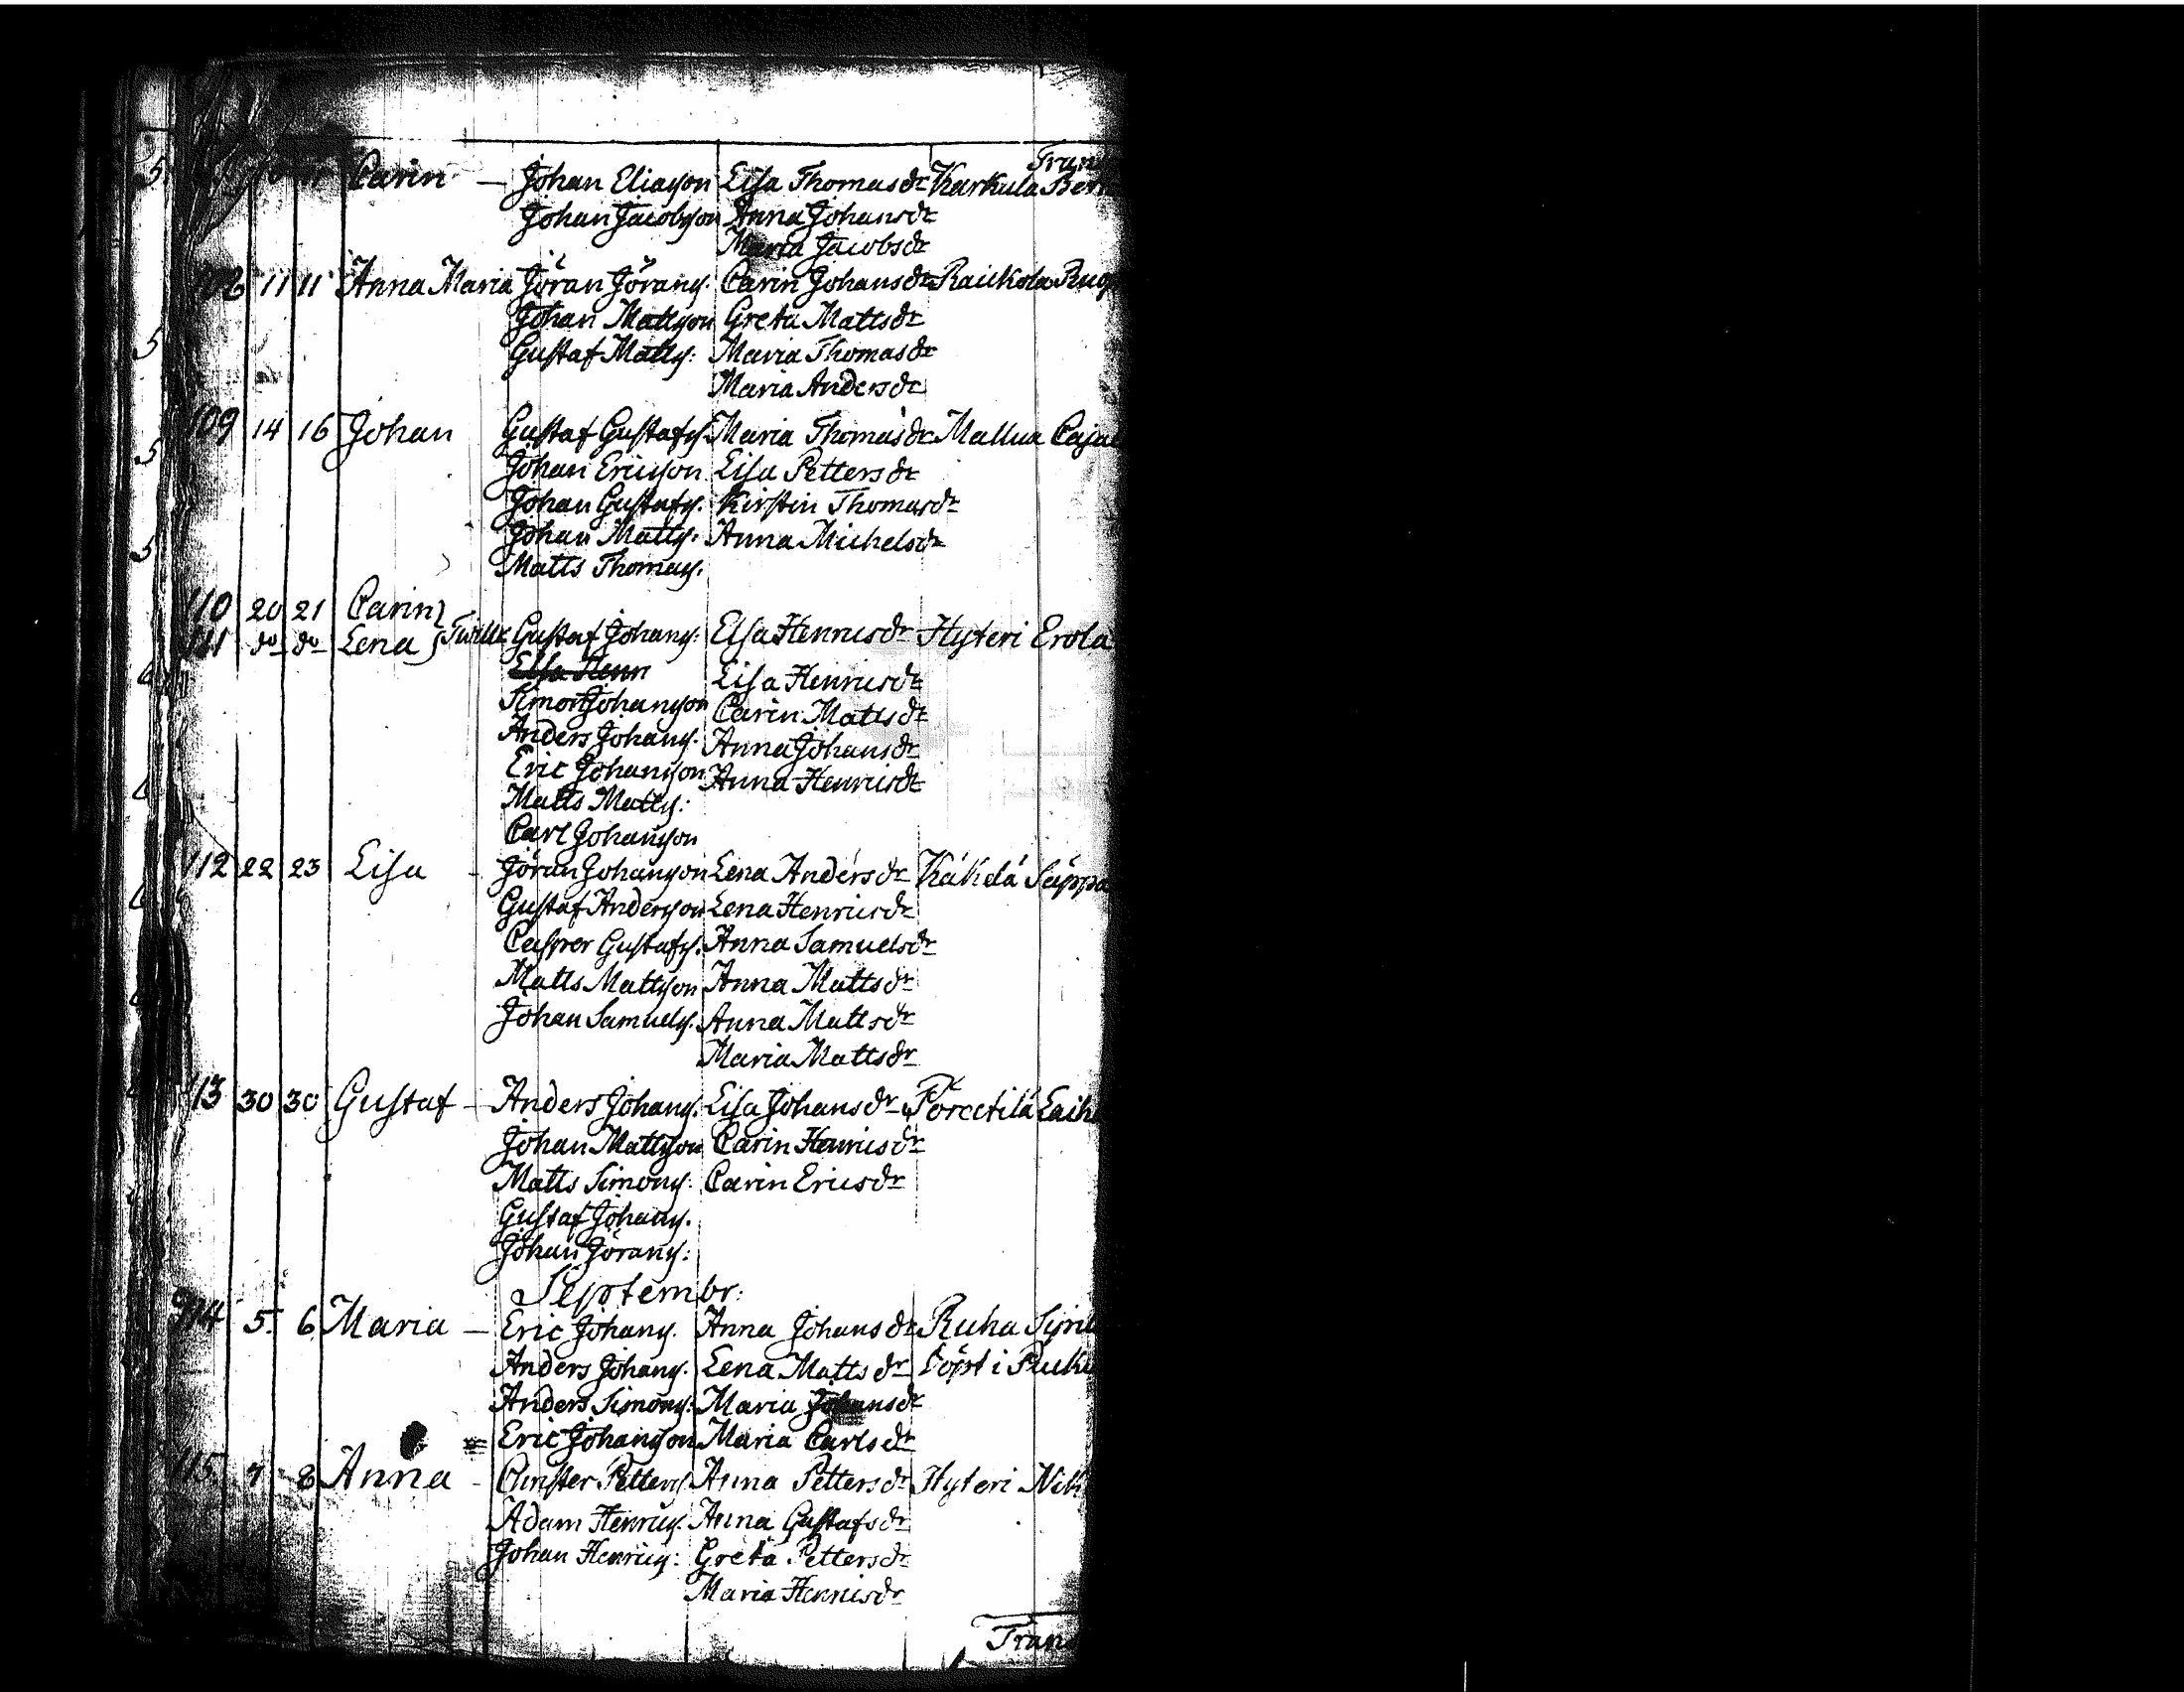 Trans
Carin — Johan Eliasson Lisa Thomasdr Karkula
Johan Jacobsson Anna Johansdr
Maria Jacobsdr
11 11 Anna Maria Jöran Jörans. Carin Johansdr Raickola
Johan Mattsson Greta Mattsdr
Gustaf Matts: Maria Thomasdr
Maria Andersdr
109 14 16 Johan Gustaf Gustafs. Maria Thomasdr Mallua
Johan Ericsson Lisa Pettersdr
Johan Gustafs. Kirstin Thomasdr
Johan Matts: Anna Michelsdr
Matts Thomas.
110 20 21 Carin
111 do do Lena Gustaf Johans: Elsa Henricsdr Hyteri Erola
Elsa Henr
Lisa Henricsdr
Simon Johansson Carin Mattsdr
Anders Johans. Anna Johansdr
Eric Johansson Anna Henricsdr
Matts Matts:
Carl Johansson
112 22 23 Lisa - Jöran Johansson Lena Andersdr Käkelä Säppä
Gustaf Andersson Lena Henricsdr
Casper Gustafs. Anna Samuelsdr
Matts Mattsson Anna Mattsdr
Johan Samuels. Anna Mattsdr
Maria Mattsdr
113 30 30 Gustaf - Anders Johans. Lisa Johansdr
Johan Mattsson Carin Henricsdr
Matts Simons: Carin Ericsdr
Gustaf Johans.
Johan Jörans:
Septembr:
114 5. 6. Maria — Eric Johans. Anna Johansdr Ruha
Anders Johans. Lena Mattsdr döpt i
Anders Simons: Maria Johansdr
Eric Johansson Maria Carlsdr
115. 7 8 Anna - Christer Petters. Anna Pettersdr Hyteri
Adam Henrics. Anna Gustafsdr
Johan Henrics: Greta Pettersdr
Maria Henricsdr
Trans